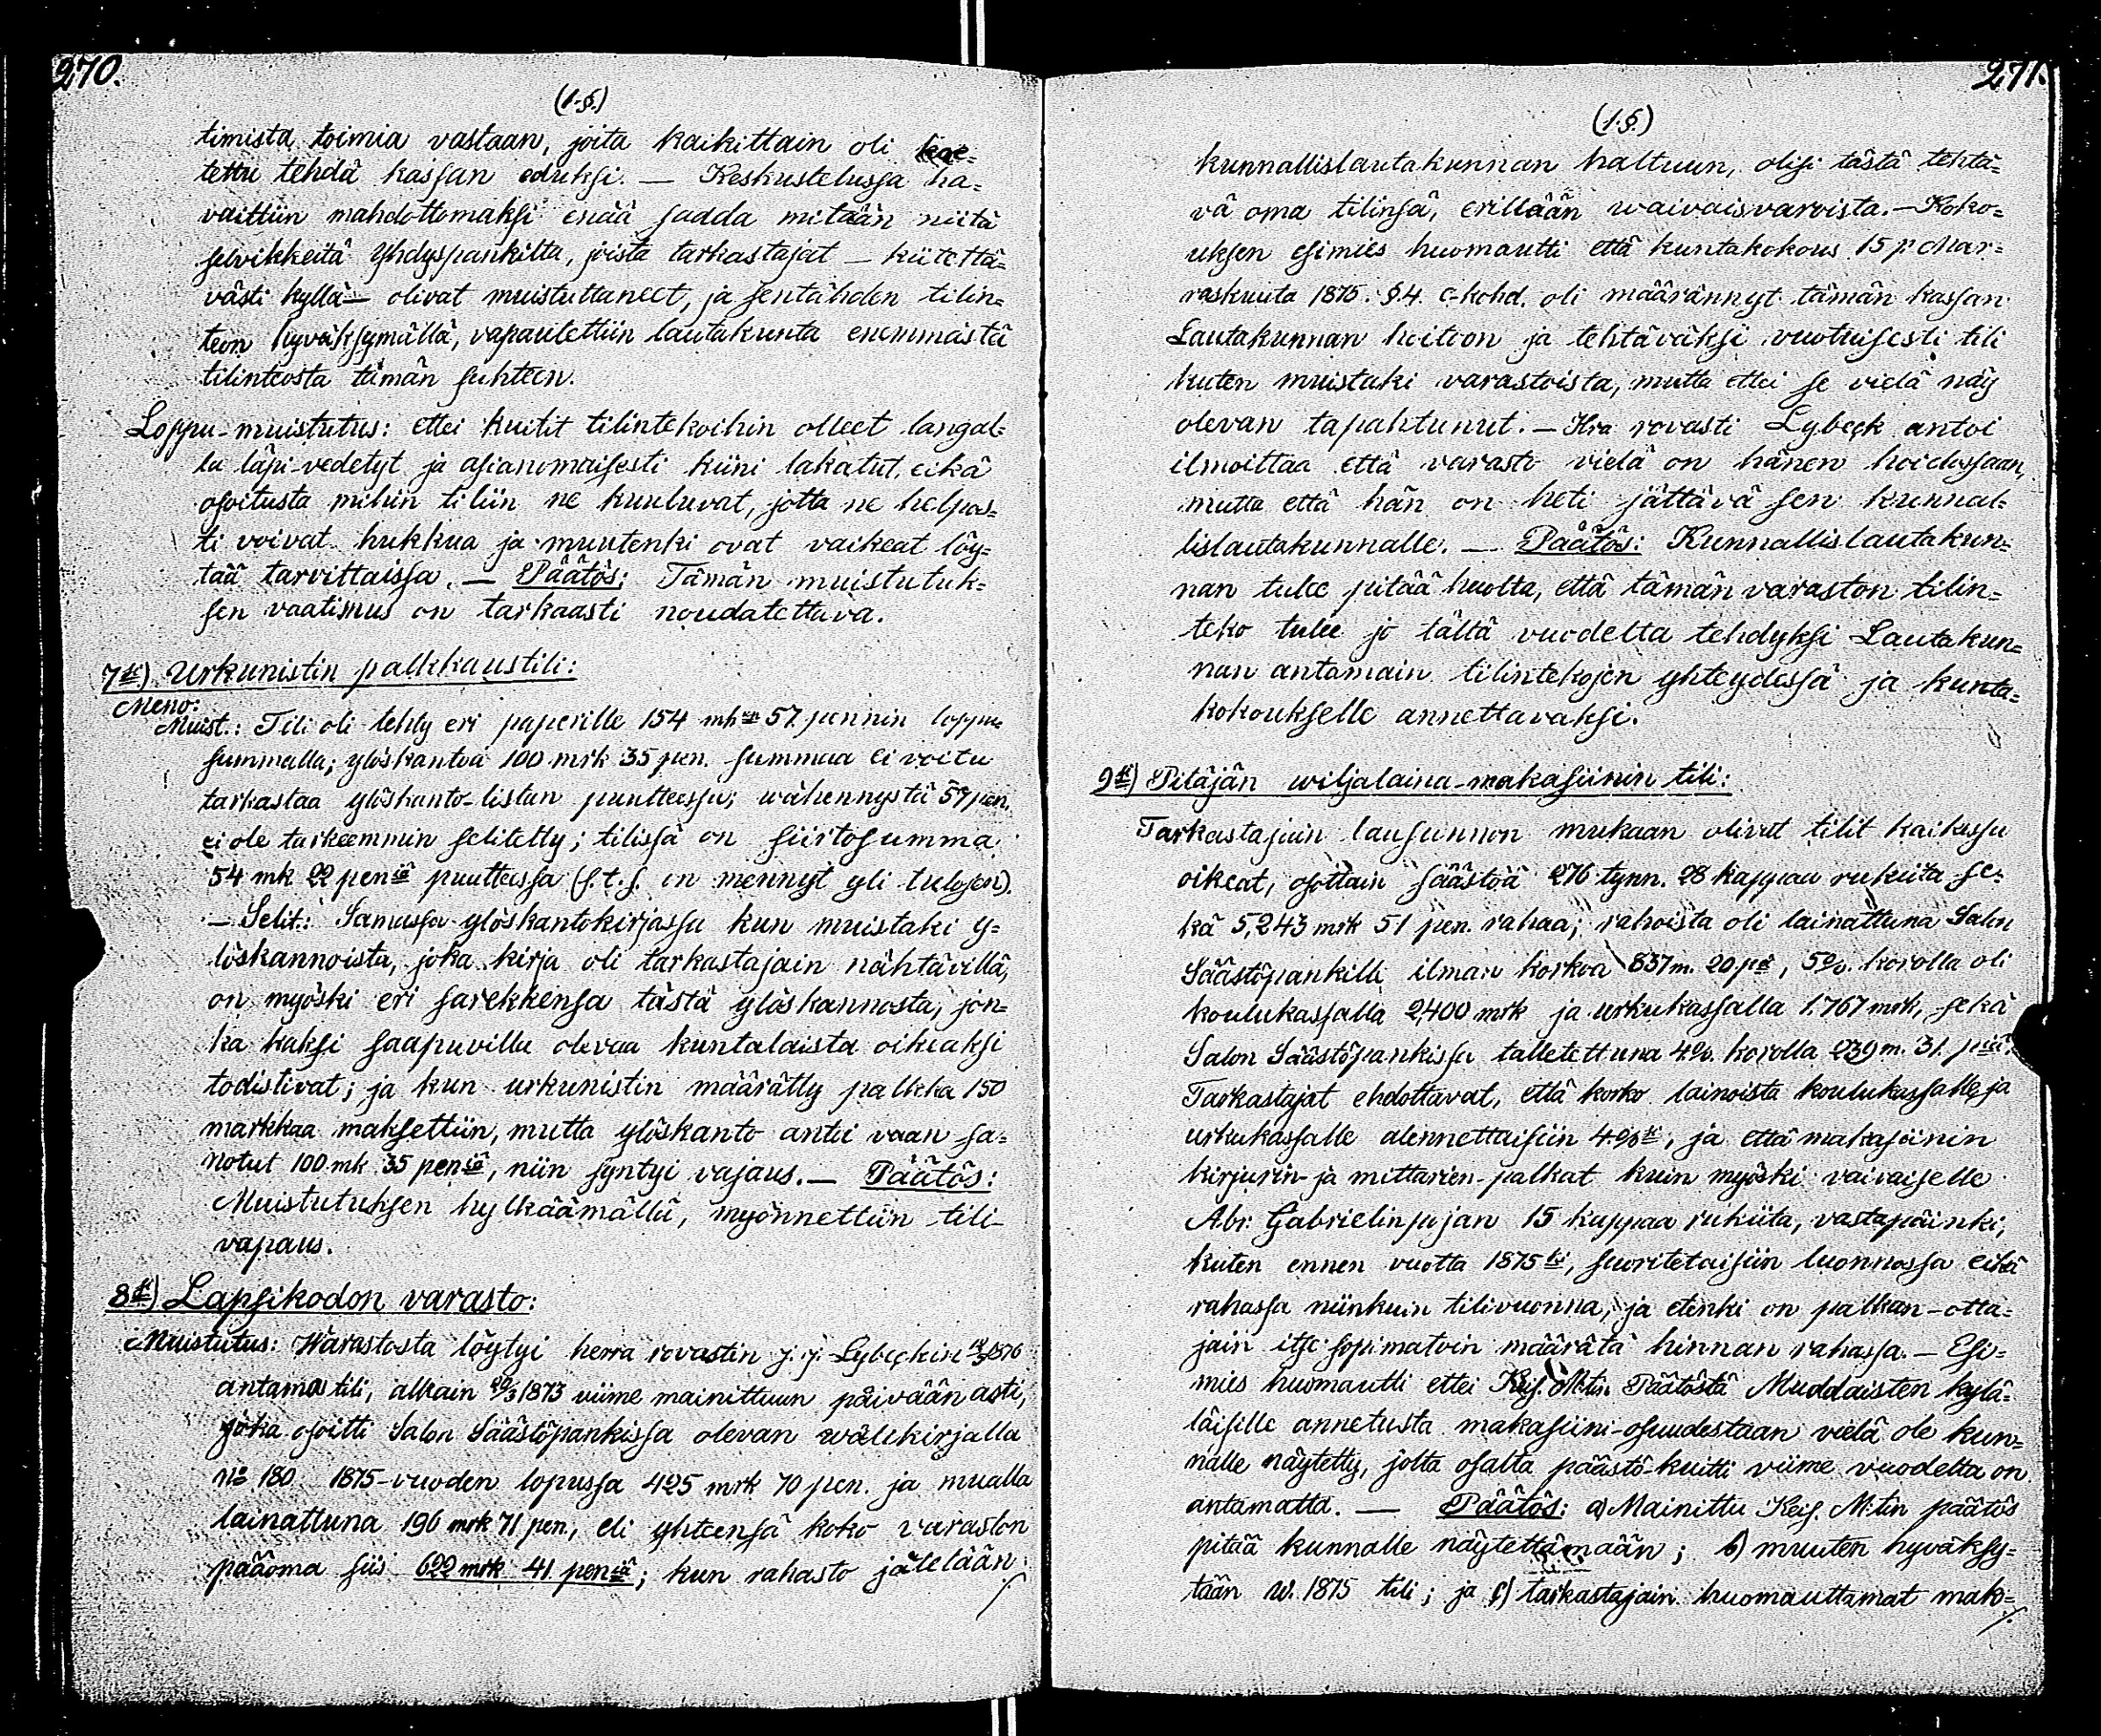 270.
(1.§.)
timista toimia vastaan, joita kaikittain oli koe=
tettu tehdä kassan eduksi. — Keskustelussa ha=
vaittiin mahdottomaksi enää saada mitään niitä
selvikkeitä Yhdyspankilta, joista tarkastajat — kiitettä=
västi kyllä — olivat muistuttaneet, ja sentähden tilin=
teon hyväksymällä, vapautettiin lautakunta enemmästä
tilinteosta tämän suhteen.
Loppu-muistutus: ettei kuitit tilintekoihin olleet langal=
la läpi-vedetyt ja asianomaisesti kiini lakatut, eikä
osoitusta mihin tiliin ne kuuluvat, jotta ne helpos=
ti voivat hukkua ja muutenki ovat vaikeat löy=
tää tarvittaissa. — Päätös: Tämän muistutuk=
sen vaatimus on tarkaasti noudatettava.
7ksi) Urkunistin palkkaustili:
Meno:
Muist.: Tili oli tehty eri paperille 154 mkan 57 pennin loppu
summalla; ylöskantoa 100 mrk 35 pen. summaa ei voitu
tarkastaa ylöskanto-listan puutteessa; wähennystä 59 pen.
ei ole tarkeemmin selitetty; tilissä on siirtosumma
54 mk 22 peniä puutteessa (s.t.s. on mennyt yli tulojen).
— Selit.: Samassa ylöskantokirjassa kun muistaki y=
löskannoista, joka kirja oli tarkastajain nähtävillä,
on myöski eri sarekkensa tästä ylöskannosta, jon=
ka kaksi saapuvilla olevaa kuntalaista oikiaksi
todistivat; ja kun urkunistin määrätty palkka 150
markkaa maksettiin, mutta ylöskanto antoi vaan sa=
notut 100 mk 35 peniä, niin syntyi vajaus. — Päätös:
Muistutuksen hylkäämällä, myönnettiin tili-
vapaus.
8ksi) Lapsikodon varasto:
Muistutus: Warastosta löytyi herra rovastin J. J. Lybeckin 1876
antama tili, alkain 20/3 1873 viime mainittuun päivään asti,
joka osoitti Salon Säästöpankissa olevan wälikirjalla
No 180 1875-vuoden lopussa 425 mrk 70 pen. ja mualla
lainattuna 196 mrk 71 pen, eli yhteensä koko varaston
pääoma siis 622 mrk 41 peniä; kun rahasto jätetään
271.
(1.§.)
kunnallislautakunnan haltuun, olisi tästä tehtä=
vä oma tilinsä, erillään waivaisvaroista. — Koko=
uksen esimies huomautti että kuntakokous 15 p Mar=
raskuuta 1875. §.4. c-kohd. oli määrännyt tämän kassan
Lautakunnan hoitoon ja tehtäväksi vuotuisesti tili
kuten muistaki varastoista, mutta ettei se vielä näy
olevan tapahtunut. — Hra rovasti Lybeck antoi
ilmoittaa että varasto vielä on hänen hoidossaan,
mutta että hän on heti jättävä sen kunnal=
lislautakunnalle. — Päätös: Kunnallislautakun=
nan tulee pitää huolta, että tämän varaston tilin=
teko tulee jo tältä vuodelta tehdyksi Lautakun=
nan antamain tilintekojen yhteydessä ja kunta=
kokoukselle annettavaksi.
9ksi) Pitäjän wiljalaina-makasiinin tili:
Tarkastajain lausunnon mukaan olivat tilit kaikessa
oikeat, osottain säästöä 276 tynn. 28 kappaa rukiita se=
kä 5,243 mrk 51 pen. rahaa; rahoista oli lainattuna Salon
Säästöpankille ilman korkoa 837 m. 20 piä, 5%. korolla oli
koulukassalla 2,400 mrk ja urkukassalla 1,767 mrk, sekä
Salon Säästöpankissa talletettuna 4%. korolla 239 m. 31 piä.
Tarkastajat ehdottavat, että korko lainoista koulukassalle ja
urkukassalle alennettaisiin 4%ksi, ja että makasiinin
kirjurin- ja mittarien-palkat kuin myöski vaivaiselle
Abr. Gabrielinpojan 15 kappaa rukiita, vastapäinki,
kuten ennen vuotta 1875ksi, suoritetaisiin luonnossa eikä
rahassa niinkuin tilivuonna, ja etenki on palkan-otta=
jain itse sopimatoin määrätä hinnan rahassa. — Esi=
mies huomautti ettei Keis. M:tin Päätöstä Muddaisten kylä=
läisille annetusta makasiini-osuudestaan vielä ole kun=
nalle näytetty, jolta osalta päästö-kuitti viime vuodelta on
antamatta. — Päätös: a) Mainittu Keis. M:tin päätös
pitää kunnalle näytettämään; b) muuten hyväksy=
tään w. 1875 tili; ja c) tarkastajain huomauttamat mak=